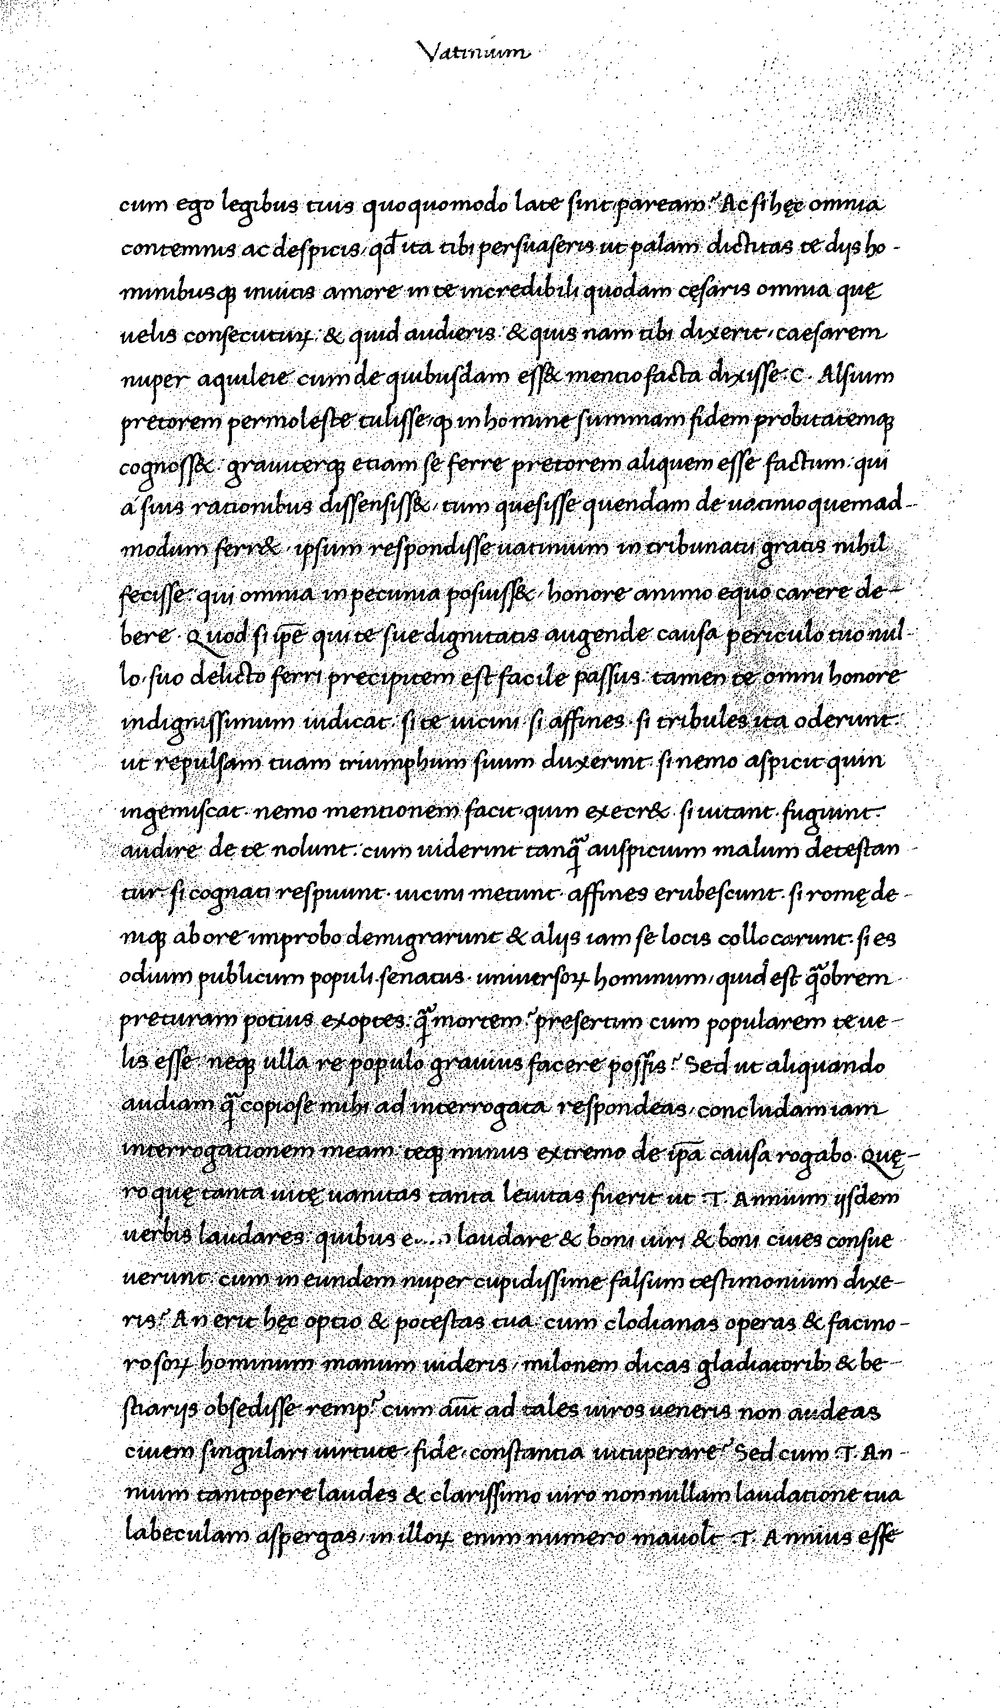 Vatinium
cum ego legibus tuis quoquomodo late sint paream? Ac si hęc omnia
contemnis ac despicis, qd̄ ita tibi persuaseris ut palam dictitas te dijs ho-
minibusqꝫ inuitis amore in te incredibili quodam cęsaris omnia quę
uelis consecuturꝝ. & quid audieris. & quis nam tibi dixerit, caesarem
nuper aquileie cum de quibusdam ess& mentio facta dixisse. C. Alfium
pretorem permoleste tulisse, ꝙ in homine summam fidem probitatemqꝫ
cognoss&. grauiterqꝫ etiam se ferre pretorem aliquem esse factum. qui
á suis rationibus dissensiss&, tum quesisse quendam de uatinio quemad-
modum ferr&. ipsum respondisse uatinium in tribunatu gratis nihil
fecisse. qui omnia in pecunia posuiss&, honore animo equo carere de-
bere. Quod si ip̄e qui te sue dignitatis augende causa periculo tuo nul-
lo, suo delicto ferri precipitem est facile passus. tamen te omni honore
indignissimum iudicat. si te uicini. si affines. si tribules ita oderunt.
ut repulsam tuam triumphum suum duxerint. si nemo aspicit quin
ingemiscat. nemo mentionem facit, quin execr&. si uitant. fugiunt.
audire de te nolunt. cum uiderint tanꝗ̄ auspicium malum detestan
tur. si cognati respuunt. uicini metunt. affines erubescunt. si romę de-
niqꝫ ab ore improbo demigrarunt & alijs iam se locis collocarunt. si es
odium publicum populi. senatus. uniuersoꝝ hominum, quid est ꝗ̄obrem
preturam potius exoptes. ꝗ̄ mortem? presertim cum popularem te ue-
lis esse. neqꝫ ulla re populo grauius facere possis? Sed ut aliquando
audiam ꝗ̄ copiose mihi ad interrogata respondeas, concludam iam
interrogationem meam. teqꝫ minus extremo de ip̄a causa rogabo. Quę-
ro quę tanta uitę uanitas tanta leuitas fuerit ut .T. Annium ijsdem
uerbis laudares. quibus e.... laudare & boni uiri & boni ciues consue
uerunt. cum in eundem nuper cupidissime falsum testimonium dixe-
ris? An erit hęc optio & potestas tua. cum clodianas operas & facino-
rosoꝝ hominum manum uideris, milonem dicas gladiatoribꝫ & be-
stiarijs obsedisse remp? cum aūt ad tales uiros ueneris non audeas
ciuem singulari uirtute. fide, constantia uituperare? Sed cum .T. An-
nium tantopere laudes & clarissimo uiro nonnullam laudatione tua
labeculam aspergas, in illoꝝ enim numero mauolt .T. Annius esse